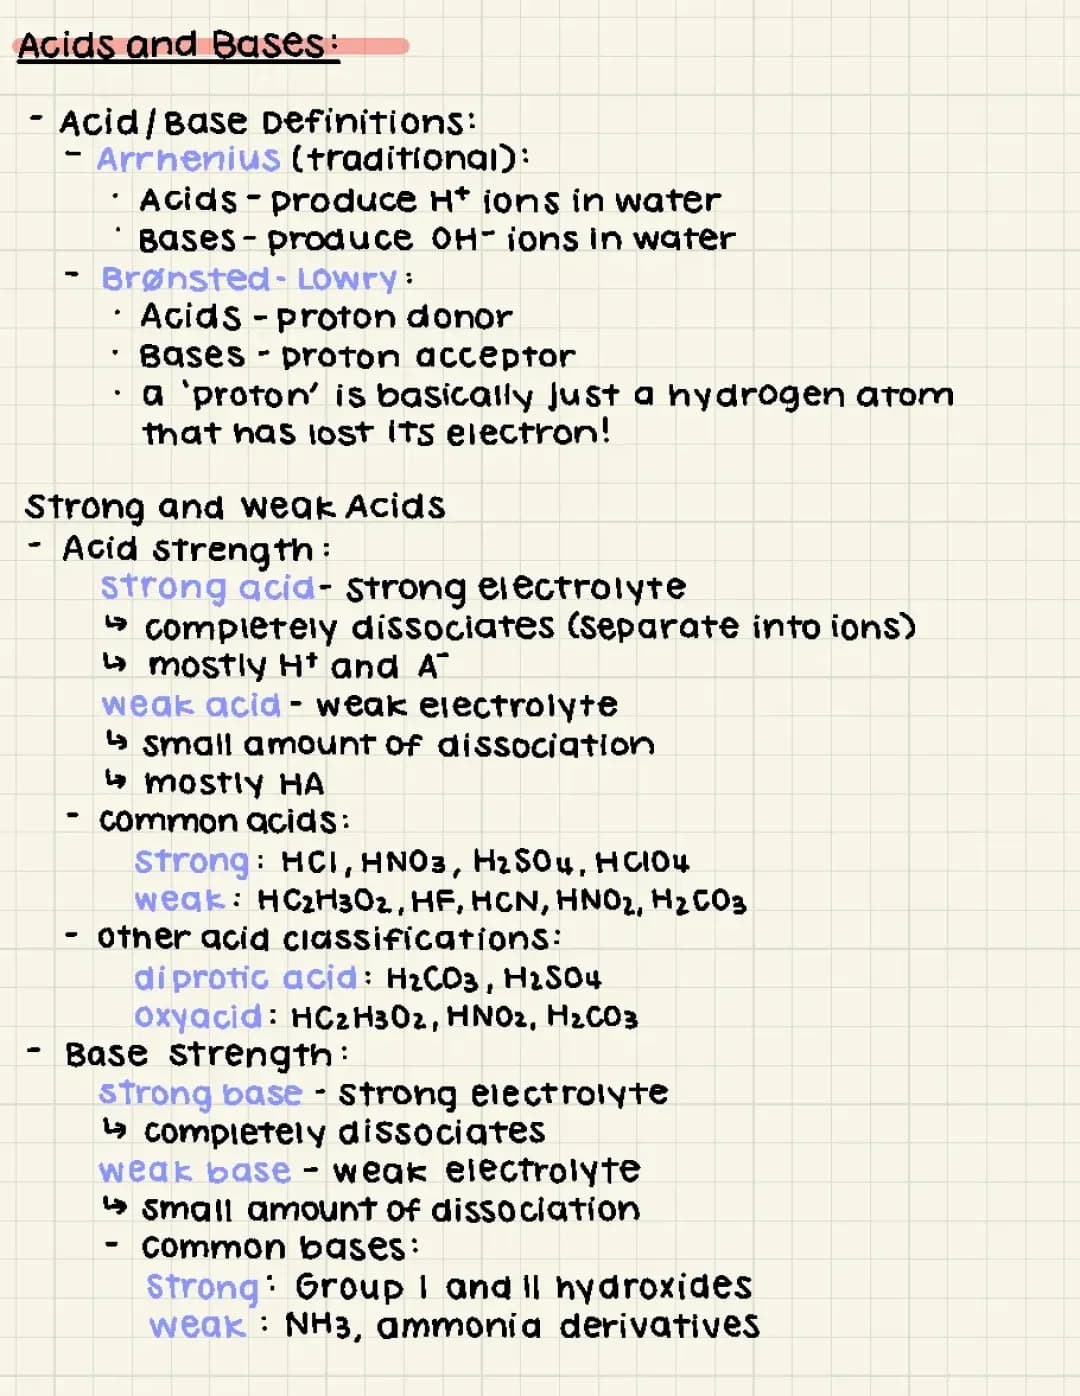 Acids and Bases:
- Acid/Base Definitions:
- Arrhenius (traditional):
· Acids - produce H⁺ ions in water
· Bases - produce OH⁻ ions in water
- Brønsted-Lowry:
· Acids - proton donor
· Bases - proton acceptor
· a 'proton' is basically just a hydrogen atom
that has lost its electron!
Strong and Weak Acids
- Acid strength:
strong acid - strong electrolyte
↳ completely dissociates (separate into ions)
↳ mostly H⁺ and A⁻
weak acid - weak electrolyte
↳ small amount of dissociation
↳ mostly HA
- common acids:
strong: HCl, HNO₃, H₂SO₄, HClO₄
weak: HC₂H₃O₂, HF, HCN, HNO₂, H₂CO₃
- other acid classifications:
diprotic acid: H₂CO₃, H₂SO₄
oxyacid: HC₂H₃O₂, HNO₂, H₂CO₃
- Base strength:
strong base - strong electrolyte
↳ completely dissociates
weak base - weak electrolyte
↳ small amount of dissociation
- common bases:
strong: Group I and II hydroxides
weak: NH₃, ammonia derivatives